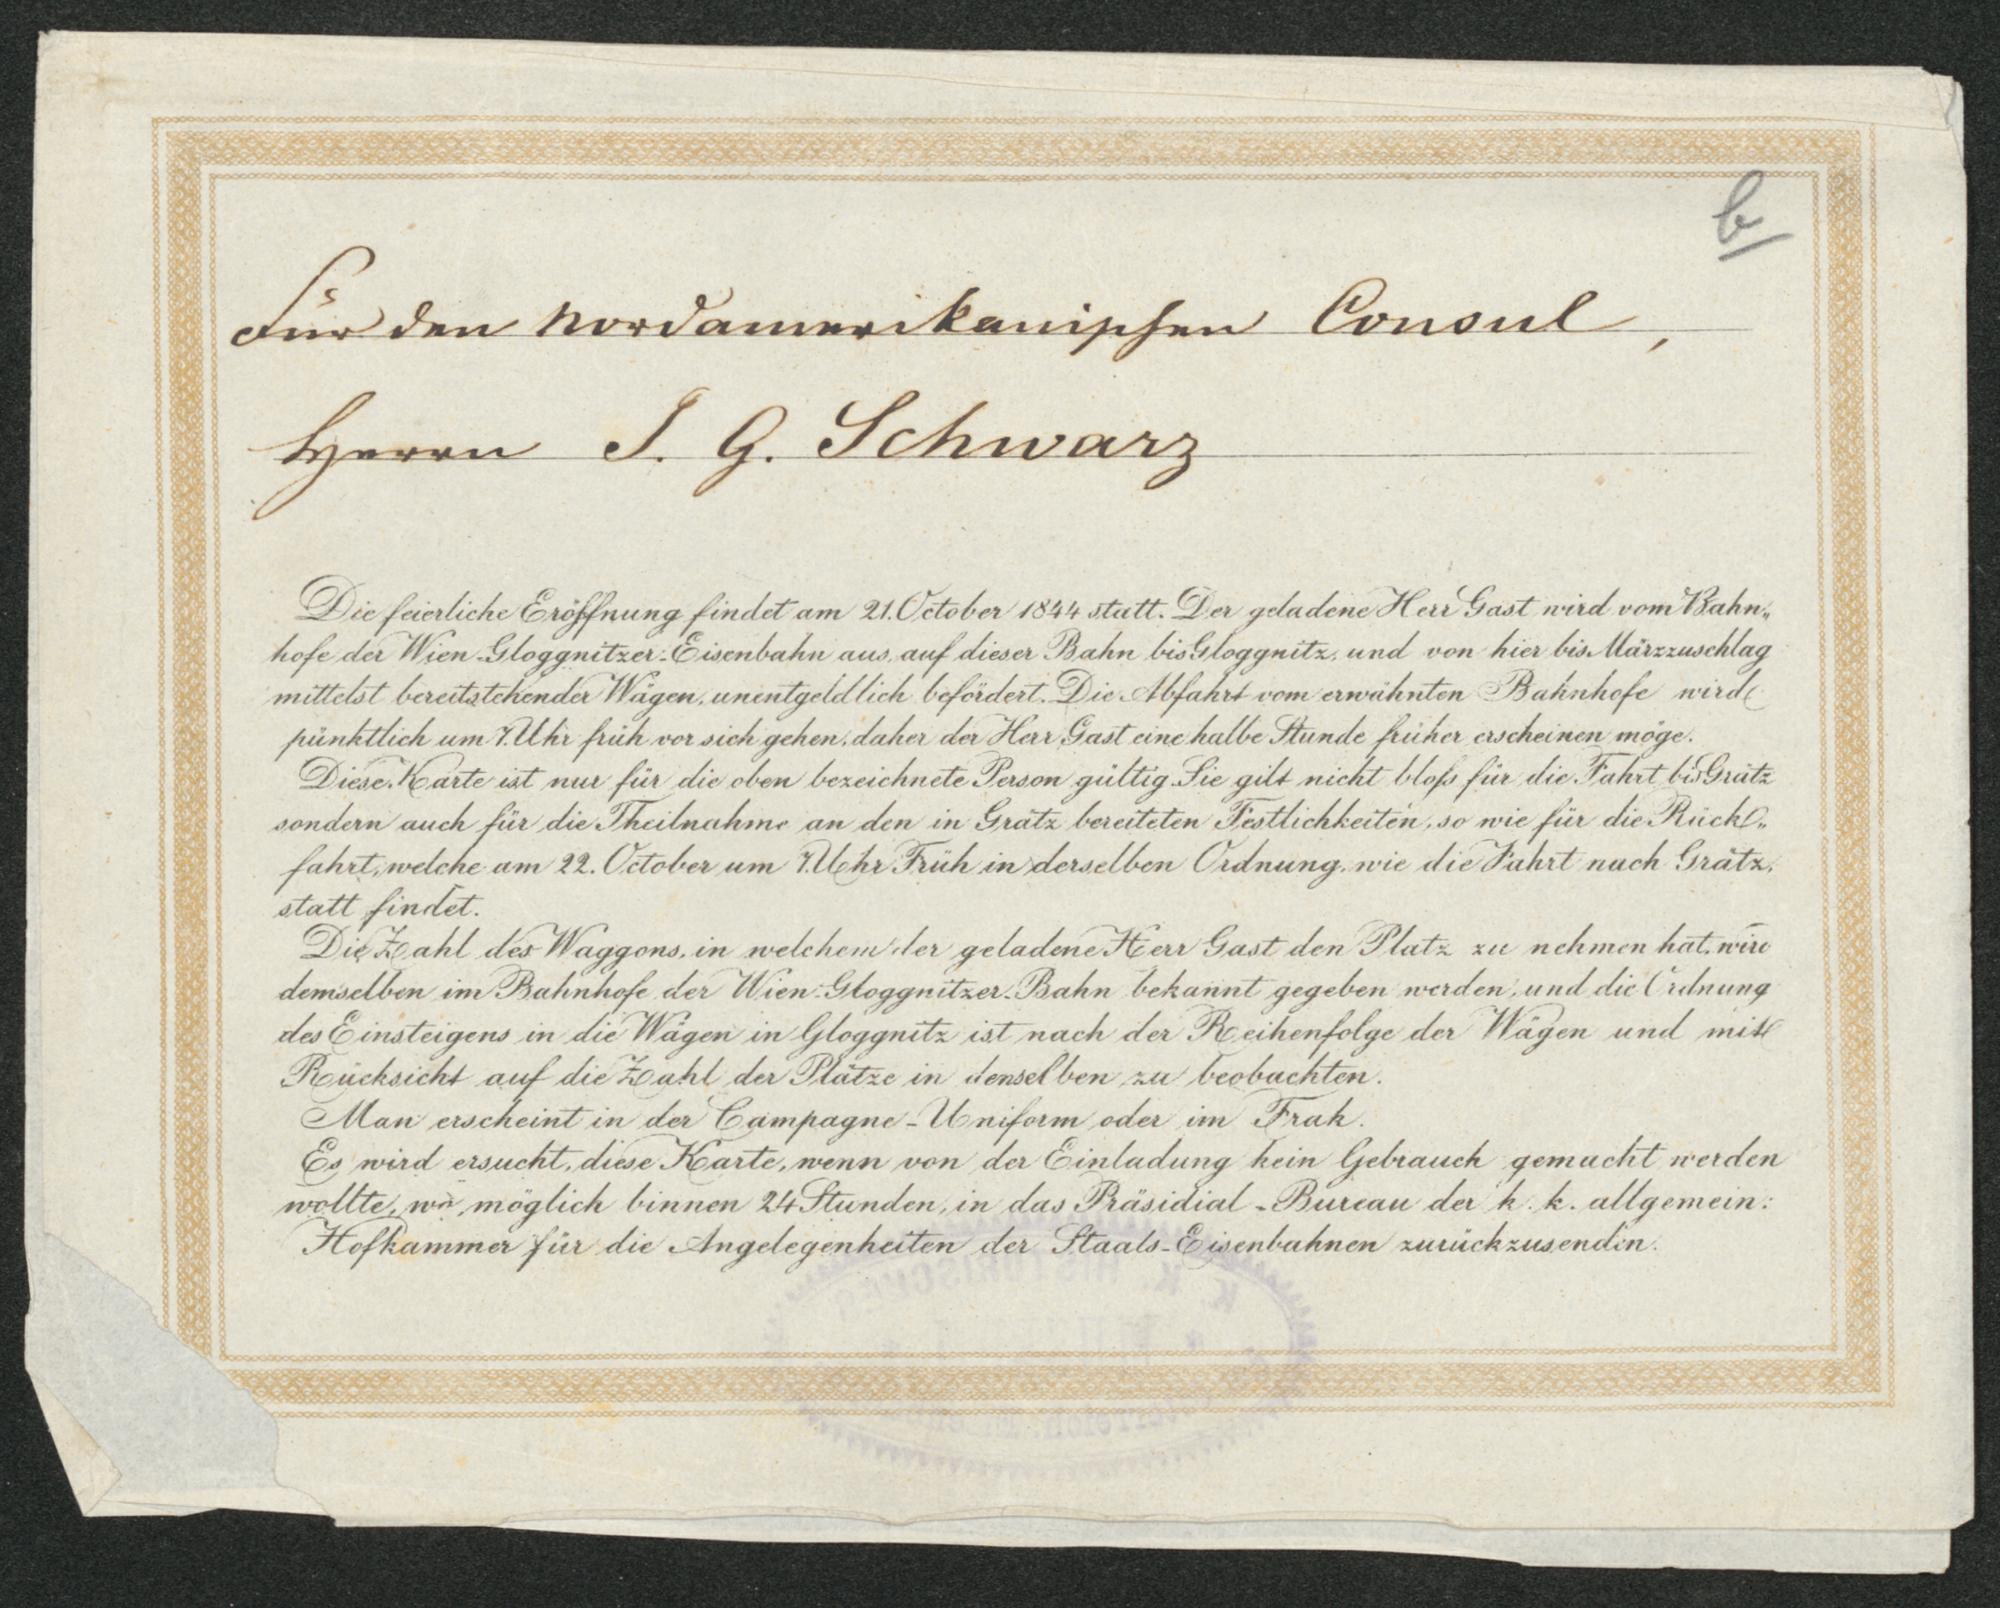 b
Für den nordamerikanischen Consul,
Herrn J. G. Schwarz
Die feierliche Eröffnung findet am 21. October 1844 statt. Der geladene Herr Gast wird vom Bahn„
hofe der Wien-Gloggnitzer-Eisenbahn aus, auf dieser Bahn bis Gloggnitz, und von hier bis Märzzuschlag
mittelst bereitstehender Wägen, unentgeldlich befördert. Die Abfahrt vom erwähnten Bahnhofe wird
pünktlich um 7 Uhr früh vor sich gehen, daher der Herr Gast eine halbe Stunde früher erscheinen möge.
Diese Karte ist nur für die oben bezeichnete Person gültig. Sie gilt nicht bloß für die Fahrt bis Grätz
sondern auch für die Theilnahme an den in Grätz bereiteten Festlichkeiten, so wie für die Rück„
fahrt, welche am 22. October um 7 Uhr Früh in derselben Ordnung, wie die Fahrt nach Grätz,
statt findet.
Die Zahl des Waggons, in welchem der geladene Herr Gast den Platz zu nehmen hat, wird
demselben im Bahnhofe der Wien-Gloggnitzer-Bahn bekannt gegeben werden, und die Ordnung
des Einsteigens in die Wägen in Gloggnitz ist nach der Reihenfolge der Wägen und mit
Rücksicht auf die Zahl der Plätze in denselben zu beobachten.
Man erscheint in der Campagne-Uniform oder im Frak.
Es wird ersucht, diese Karte, wenn von der Einladung kein Gebrauch gemacht werden
wollte, wo möglich binnen 24 Stunden, in das Präsidial-Bureau der k. k. allgemein:
Hofkammer für die Angelegenheiten der Staats-Eisenbahnen zurückzusenden.
K. K. HISTORISCHES